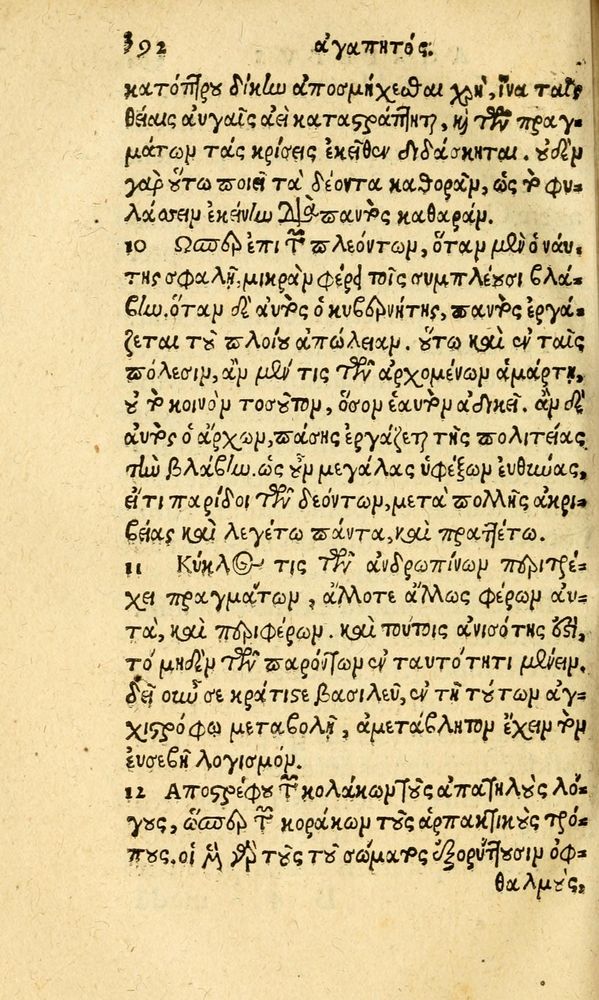 392 ἀγαπητός.
κατόπτρου δίκην ἀποσμήχεσθαι χρὴ, ἵνα ταῖς
θείαις αὐγαῖς ἀεὶ καταστράπτηται, καὶ τῶν πραγ-
μάτων τὰς κρίσεις ἐκεῖθεν διδάσκηται. οὐδὲν
γὰρ οὕτω ποιεῖ τὰ δέοντα καθορᾶν, ὡς τὸ φυ-
λάσσειν ἐκείνην διὰ παντὸς καθαράν.
10 Ωσπερ ἐπὶ τῶν πλεόντων, ὅταν μὲν ὁ ναύ-
της σφαλῇ, μικρὰν φέρει τοῖς συμπλέουσι βλά-
βην. ὅταν δὲ αὐτὸς ὁ κυβερνήτης, παντὸς ἐργά-
ζεται τοῦ πλοίου ἀπώλειαν. οὕτω καὶ ἐν ταῖς
πόλεσιν, ἂν μέν τις τῶν ἀρχομένων ἁμάρτῃ,
οὐ τὸ κοινὸν τοσοῦτον, ὅσον ἑαυτὸν ἀδικεῖ. ἂν δὲ
αὐτὸς ὁ ἄρχων, πάσης ἐργάζεται τῆς πολιτείας
τὴν βλάβην. ὡς οὖν μεγάλας ὑφέξων εὐθύνας,
εἴ τι παρίδοι τῶν δεόντων, μετὰ πολλῆς ἀκρι-
βείας καὶ λεγέτω πάντα, καὶ πραττέτω.
11 Κύκλος τις τῶν ἀνδρωπίνων περιτρέ-
χει πραγμάτων, ἄλλοτε ἄλλως φέρων αὐ-
τὰ, καὶ περιφέρων. καὶ τούτοις ἀνισότης ἐστὶ,
τὸ μηδὲν τῶν παρόντων ἐν ταυτότητι μένειν.
δεῖ οὖν σε κράτιστε βασιλεῦ, ἐν τῇ τούτων ἀγ-
χιστρόφῳ μεταβολῇ, ἀμετάβλητον ἔχειν τὸν
εὐσεβῆ λογισμόν.
12 Αποστρέφου τῶν κολάκων τοὺς ἀπατηλοὺς λό-
γους, ὥσπερ τῶν κοράκων τοὺς ἁρπακτικοὺς τρό-
πους. οἱ μὲν γὰρ τοὺς τοῦ σώματος ἐξορύττουσιν ὀφ-
θαλμούς,